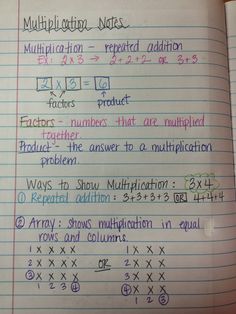 Multiplication Notes
Multiplication - repeated addition
Ex: 2x3 → 2+2+2 or 3+3
2 x 3 = 6
factors product
Factors - numbers that are multiplied
together.
Product - the answer to a multiplication
problem.
Ways to Show Multiplication: 3x4
① Repeated addition: 3+3+3+3 OR 4+4+4
② Array: shows multiplication in equal
rows and columns.
1 X X X X 1 X X X
2 X X X X OR 2 X X X
③ X X X X 3 X X X
1 2 3 ④ ④ X X X
1 2 ③